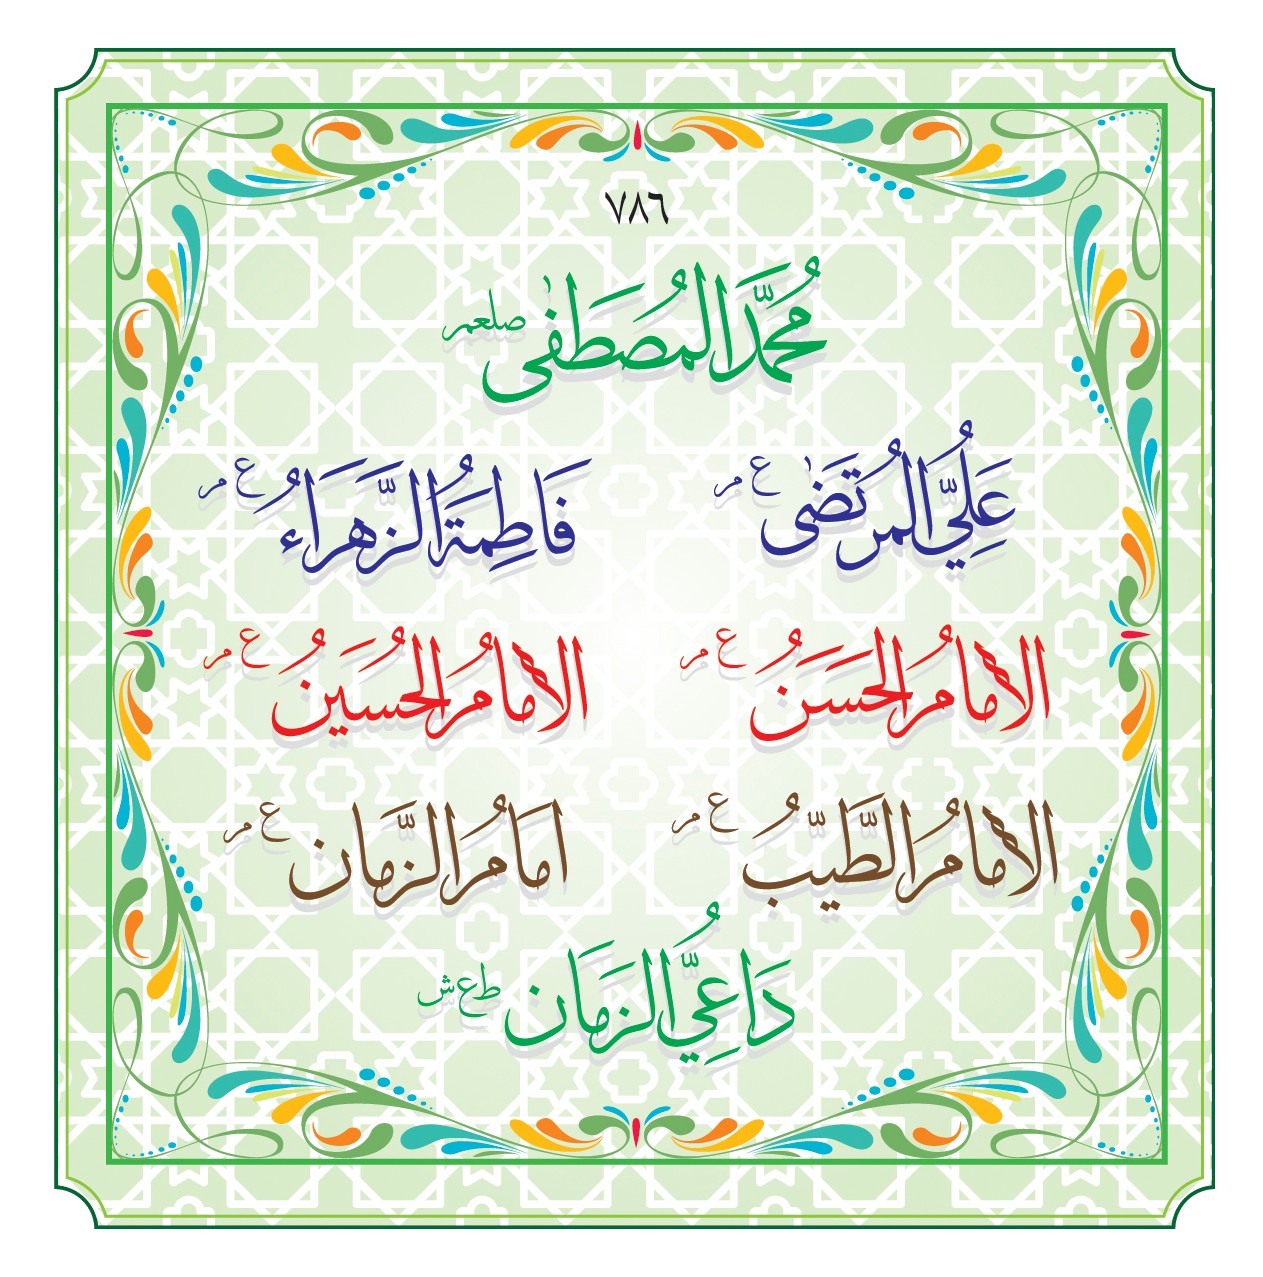 ٧٨٦
مُحَمَّدُ المُصْطَفٰى صلعم
عَلِيُّ المُرتَضٰى ع م فَاطِمَةُ الزَّهرَاءُ ع م
الاِمَامُ الحَسَنُ ع م الاِمَامُ الحُسَينُ ع م
الاِمَامُ الطَّيِّبُ ع م اِمَامُ الزَّمَان ع م
دَاعِيُّ الزَمَان ط ع ش